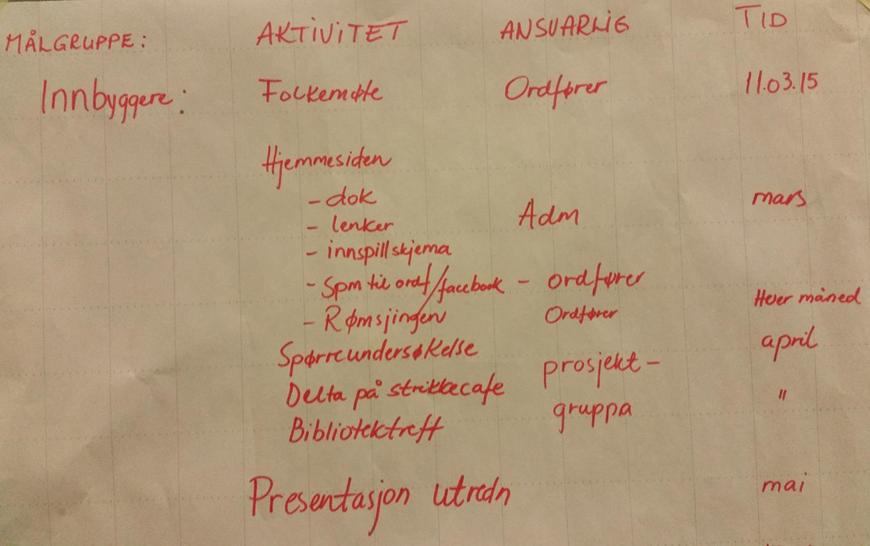 MÅLGRUPPE: AKTIVITET ANSVARLIG TID
Innbyggere: Folkemøte Ordfører 11.03.15
Hjemmesiden
- dok mars
- lenker Adm
- innspillskjema
- Spm til ordf/facebook - ordfører
- Rømsjingen Ordfører Hver måned
Spørreundersøkelse prosjekt- april
Delta på strikkecafe gruppa "
Bibliotektreff
Presentasjon utredn mai